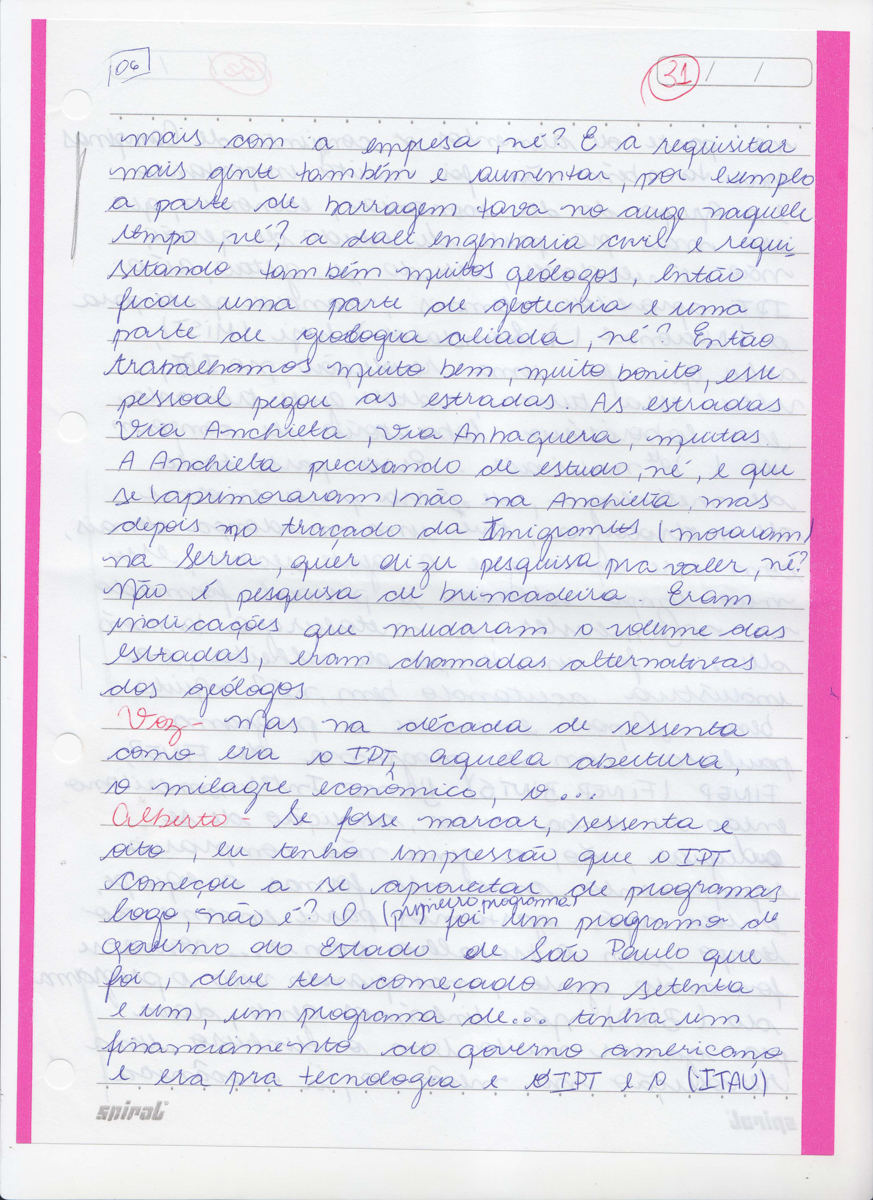 06
31 / /
mais com a empresa, né? E a requisitar
mais gente também e aumentar, por exemplo
a parte de barragem tava no auge naquele
tempo, né? a da engenharia civil e requi-
sitando também muitos geólogos, então
ficou uma parte de geotecnia e uma
parte de geologia aliada, né? Então
trabalhamos muito bem, muito bonito, esse
pessoal pegou as estradas. As estradas
Via Anchieta, Via Anhaguera, muitas.
A Anchieta precisando de estudo, né, e que
se (aprimoraram) não na Anchieta, mas
depois no traçado da Imigrantes (moraram)
na Serra, quer dizer pesquisa pra valer, né?
Não é pesquisa de brincadeira. Eram
indicações que mudaram o volume das
estradas, eram chamadas alternativas
dos geólogos
Voz - Mas na década de sessenta
como era o IPT, aquela abertura,
o milagre econômico, o...
Alberto - Se fosse marcar, sessenta e
oito, eu tenho impressão que o IPT
começou a se aproveitar de programas
logo, não é? O (primeiro programa) foi um programa de
governo do Estado de São Paulo que
foi, deve ter começado em setenta
e um, um programa de... tinha um
financiamento do governo americano
e era pra tecnologia e o IPT e o (ITAÚ)
spiral